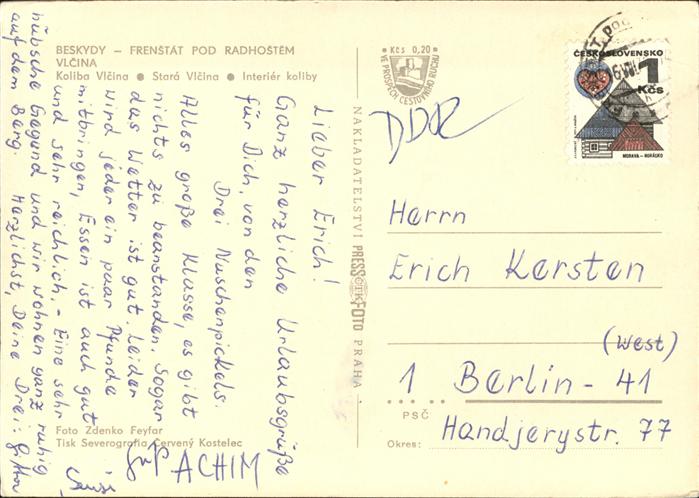 BESKYDY – FRENŠTÁT POD RADHOŠTĚM
VLČINA
Koliba Vlčina ● Stará Vlčina ● Interiér koliby
Lieber Erich!
Ganz herzliche Urlaubsgrüße
für Dich, von den
Drei Nuschenpickels.
Alles große Klasse, es gibt
nichts zu beanstanden. Sogar
das Wetter ist gut. Leider
wird jeder ein paar Pfunde
mitbringen, Essen ist auch gut
und sehr reichlich. - Eine sehr
hübsche Gegend und wir wohnen ganz ruhig
auf dem Berg. Herzlichst, Deine Drei:
ACHIM
Foto Zdenko Feyfar
Tisk Severografia Červený Kostelec
NAKLADATELSTVÍ PRESSFOTO PRAHA
ČTK
Kčs 0,20
VE PROSPĚCH CESTOVNÍHO RUCHU
ČESKOSLOVENSKO
1
Kčs
MORAVA - HORÁCKO
DDR
Herrn
Erich Kersten
(West)
1 Berlin - 41
PSČ
Handjerystr. 77
Okres: